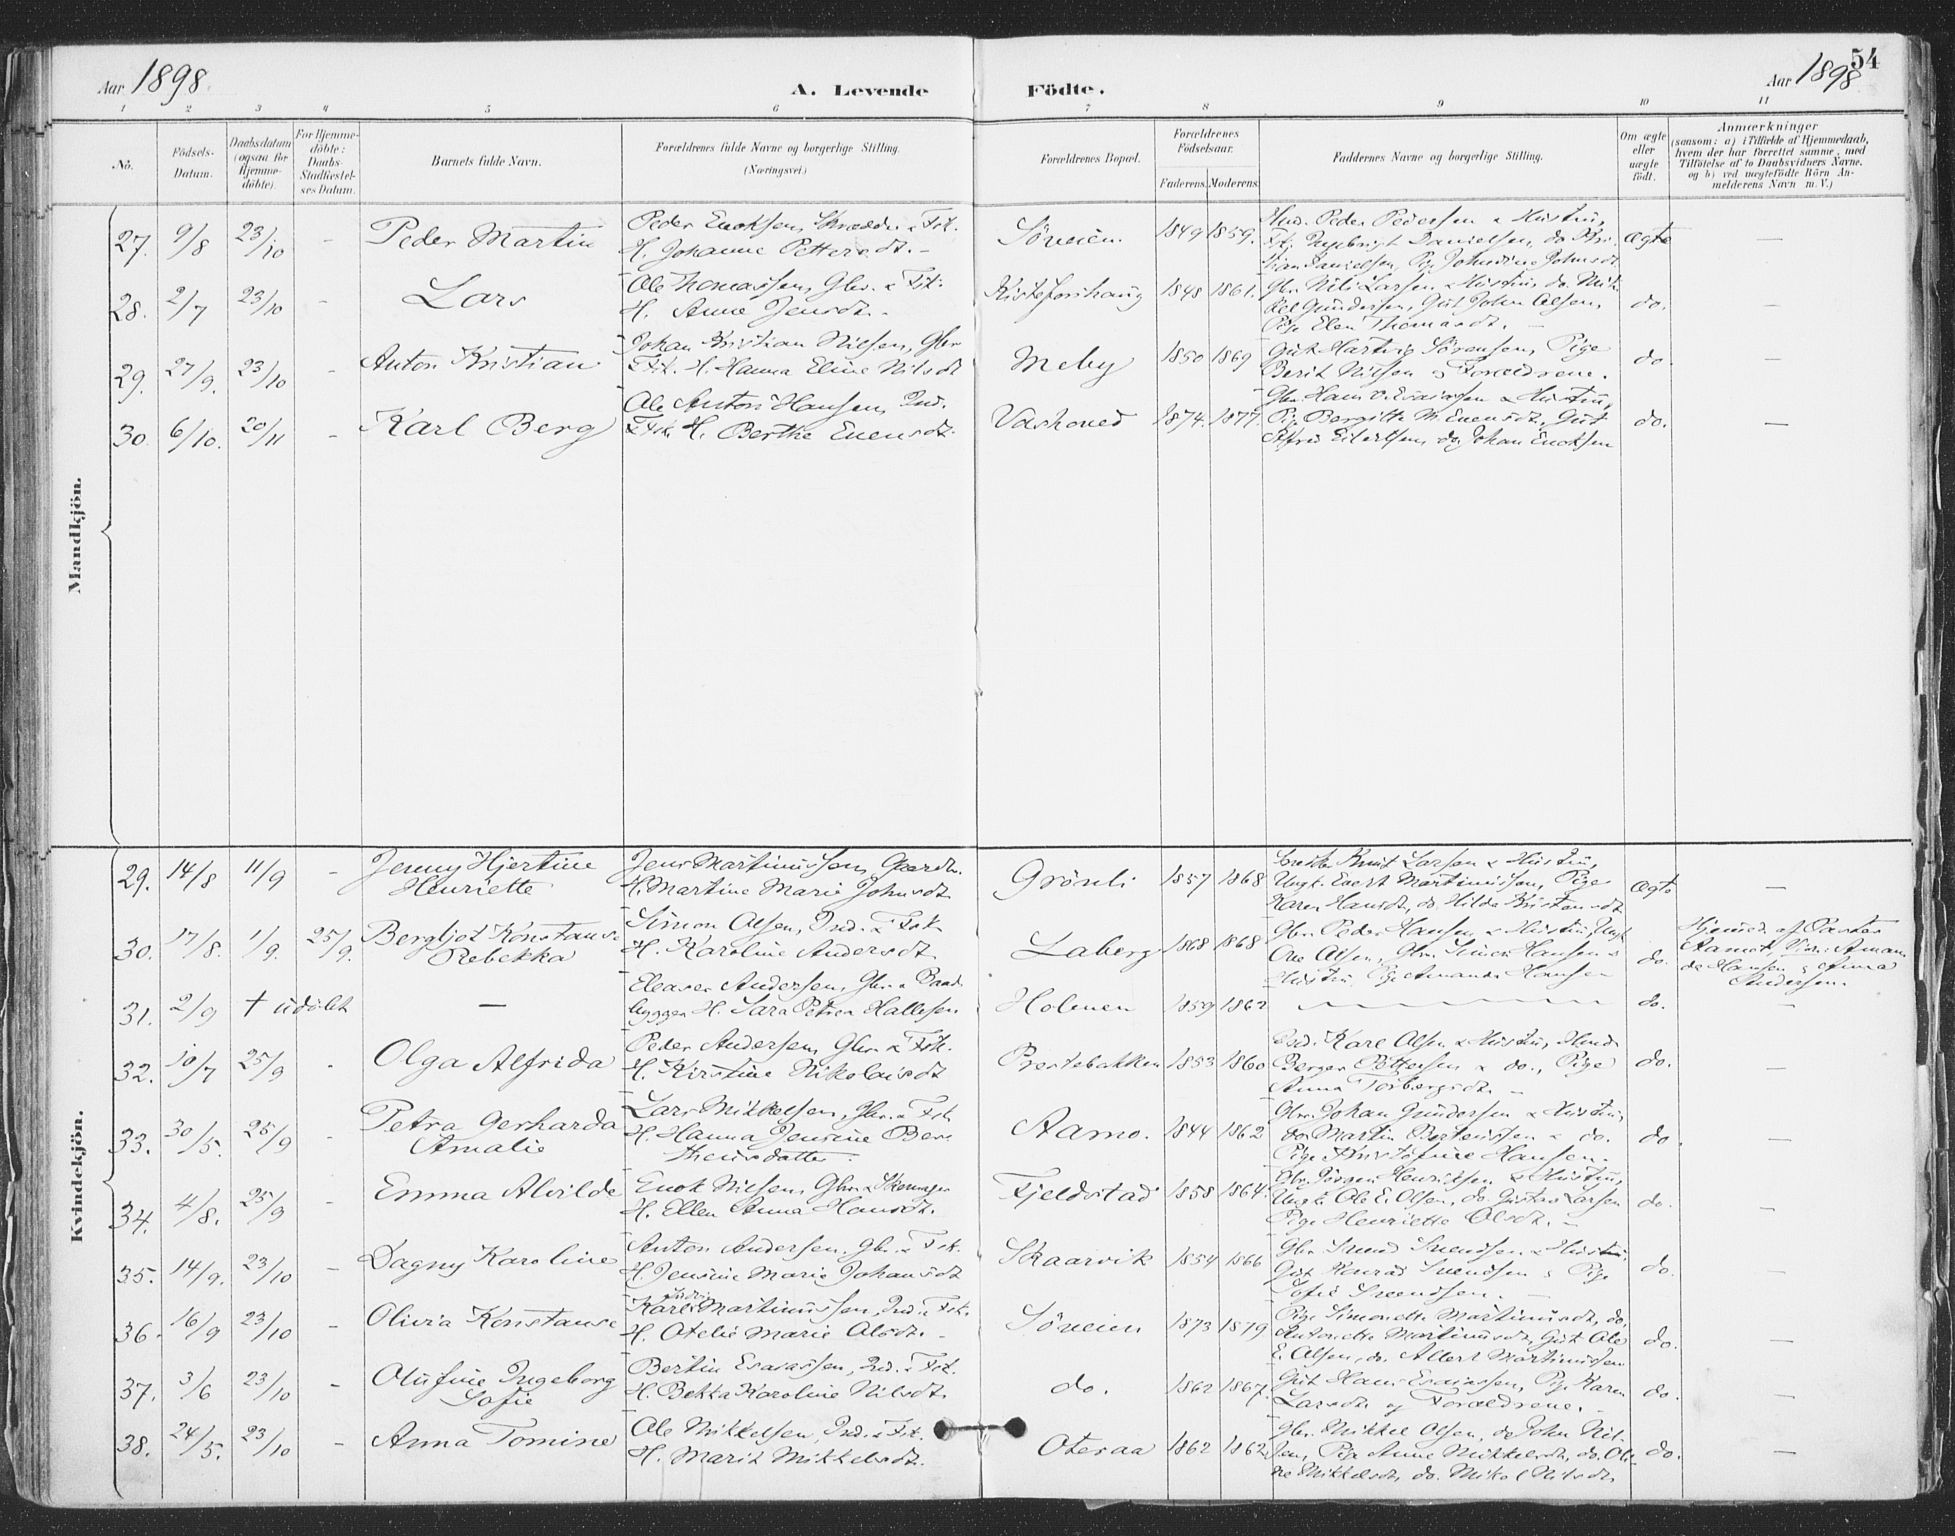 54
Aar 1898 A. Levende Födte. Aar 1898
1 2 3 4 5 6 7 8 9 10 11
No. Födsels-Datum. Daabsdatum (ogsaa for Hjemme-döbte). For Hjemme-döbte: Daabs-Stadfæstel-ses Datum. Barnets fulde Navn. Forældrenes fulde Navne og borgerlige Stilling. (Næringsvei.) Forældrenes Bopæl. Forældrenes Födselsaar. Faderens. Moderens. Faddernes Navne og borgerlige Stilling. Om ægte eller uægte födt. Anmærkninger (saasom: a) i Tilfælde af Hjemmedaab, hvem der har forrettet samme, med Tilföielse af to Daabsvidners Navne. og b) ved uægtefödte Börn An-melderens Navn m. V.)
Mandkjön.
27. 9/8 23/10 - Peder Martin
Peder Enoksen, & Fsk.
H. Johanne Pettersdt. -
Söveien 1849 1859.
Peder Pedersen & Hustru,
Ingebrigt Danielsen, do Kri-
stian Danielsen, Pige Johndt
ægte —
28. 2/7 23/10 - Lars
Ole Thomassen, Gbr. & Fsk.
H. Anne Jensdt. -
1848 1861.
Gbr. Nils Larsen & Hustru, do. Mik-
kel Gundersen, Gut John Olsen,
Pige Elen Thomasdt. -
do. -
29. 27/9. 23/10 - Anton Kristian
Johan Kristian Nilsen, Gbr
Fsk. H. Hanna Eline Nilsdt
Meby 1850 1869
Gut Hartvig Sörensen, Pige
Berit Nilsen & Forældrene.
do. —
30. 6/10. 20/11 - Karl Berg
Ole Anton Hansen, Ind.
& Fsk. H. Berthe Evensdt.
1874. 1877.
Gbr. Hans Esaiassen & Hustru,
Pig. Bergitte M. Evensdt, Gut
Alfred Eilertsen, do Johan Enoksen
do. —
Kvindekjön.
29. 14/8 11/9 - Jenny Hjertine Henriette
Jens Martinussen, Gaardbr.
H. Martine Marie Johnsdt
Grönli 1857 1868
Knut Larsen & Hustru,
Ungk. Evert Martinussen, Pige
Karen Hansdt, do. Hilda Kristensdt
ægte —
30. 17/8. 1/9. 25/9. Bergljot Konstanse Rebekka
Simon Olsen, Ind. & Fsk
H. Karoline Andersdt.
Laberg 1868 1868
Gbr. Peder Hansen & Hustru, Ungk
Ole Olsen, Gbr. Hansen &
Hustru, Pige Amanda Hansen
do.
Hjemmed. af Pastor
Aamot, Vidn: Aman-
da Hansen & Anna
Andersen.
31. 2/9 † udöbt —
Eleaser Andersen, Gbr. & Baad-
bygger H. Sara Petrea Hallesen
Holmen 1859 1862 do. —
32. 10/7 25/9 - Olga Alfrida
Peder Andersen, Gbr. & Fsk.
H. Kirstine Nikolaisdt
Prestebakken 1853 1860
Karl Olsen & Hustru,
Berger Pettersen & do., Pige
Anna Torbergsdt. -
do. —
33. 30/5. 25/9 - Petra Gerharda Amalie
Lars Mikkelsen, Gbr. & Fsk
H. Hanna Jensine Ber-
theusdatter.
Aamo. 1844 1862
Gbr. Johan Gundersen & Hustru,
do. Martin Berteussen & do.
Pige Kristofine Hansen.
do. —
34. 4/8. 25/9 - Emma Alvilde
Enok Nilsen, Gbr. & Skomager
H. Ellen Anna Hansdt.
Fjeldstad 1858 1864.
Gbr. Jörgen Henriksen & Hustru,
Ungk. Ole E. Olsen, do. Gustav Larsen
Pige Henriette Olsdt. -
do. —
35. 14/9. 23/10 - Dagny Karoline
Anton Andersen, Gbr. & Fsk.
H. Jensine Marie Johansdt
Skaarvik 1854 1866
Gbr. Svend Svendsen & Hustru,
Gut Konrad Svendsen & Pige
Sofie Svendsen. -
do. —
36. 16/9 23/10 - Olivia Konstanse
Karl Martinussen, Ind. & Fsk.
H. Otelie Marie Olsdt. -
Söveien 1873 1879
Pige Simonette Martinusdt, do.
Antonette Martinusdt, Gut Ole
E. Olsen, do. Albert Martinussen
do. —
37. 3/6 23/10 - Olufine Ingeborg Sofie
Bertin Esaiassen, Ind. & Fsk.
H. Bekka Karoline Nilsdt.
do. 1862 1867.
Gut Hans Esaiassen, Pige Karen
Larsdt. og Forældrene.
do. —
38. 24/5. 23/10 - Anna Tomine
Ole Mikkelsen, Ind. & Fsk.
H. Marit Mikkelsdt.
Oteraa 1862 1862
Gbr. Mikkel Olsen, do John Nil-
sen, Pige Anne Mikkelsdt, do. Oli-
ne Mikkelsdt, do. Nilsdt.
do. —